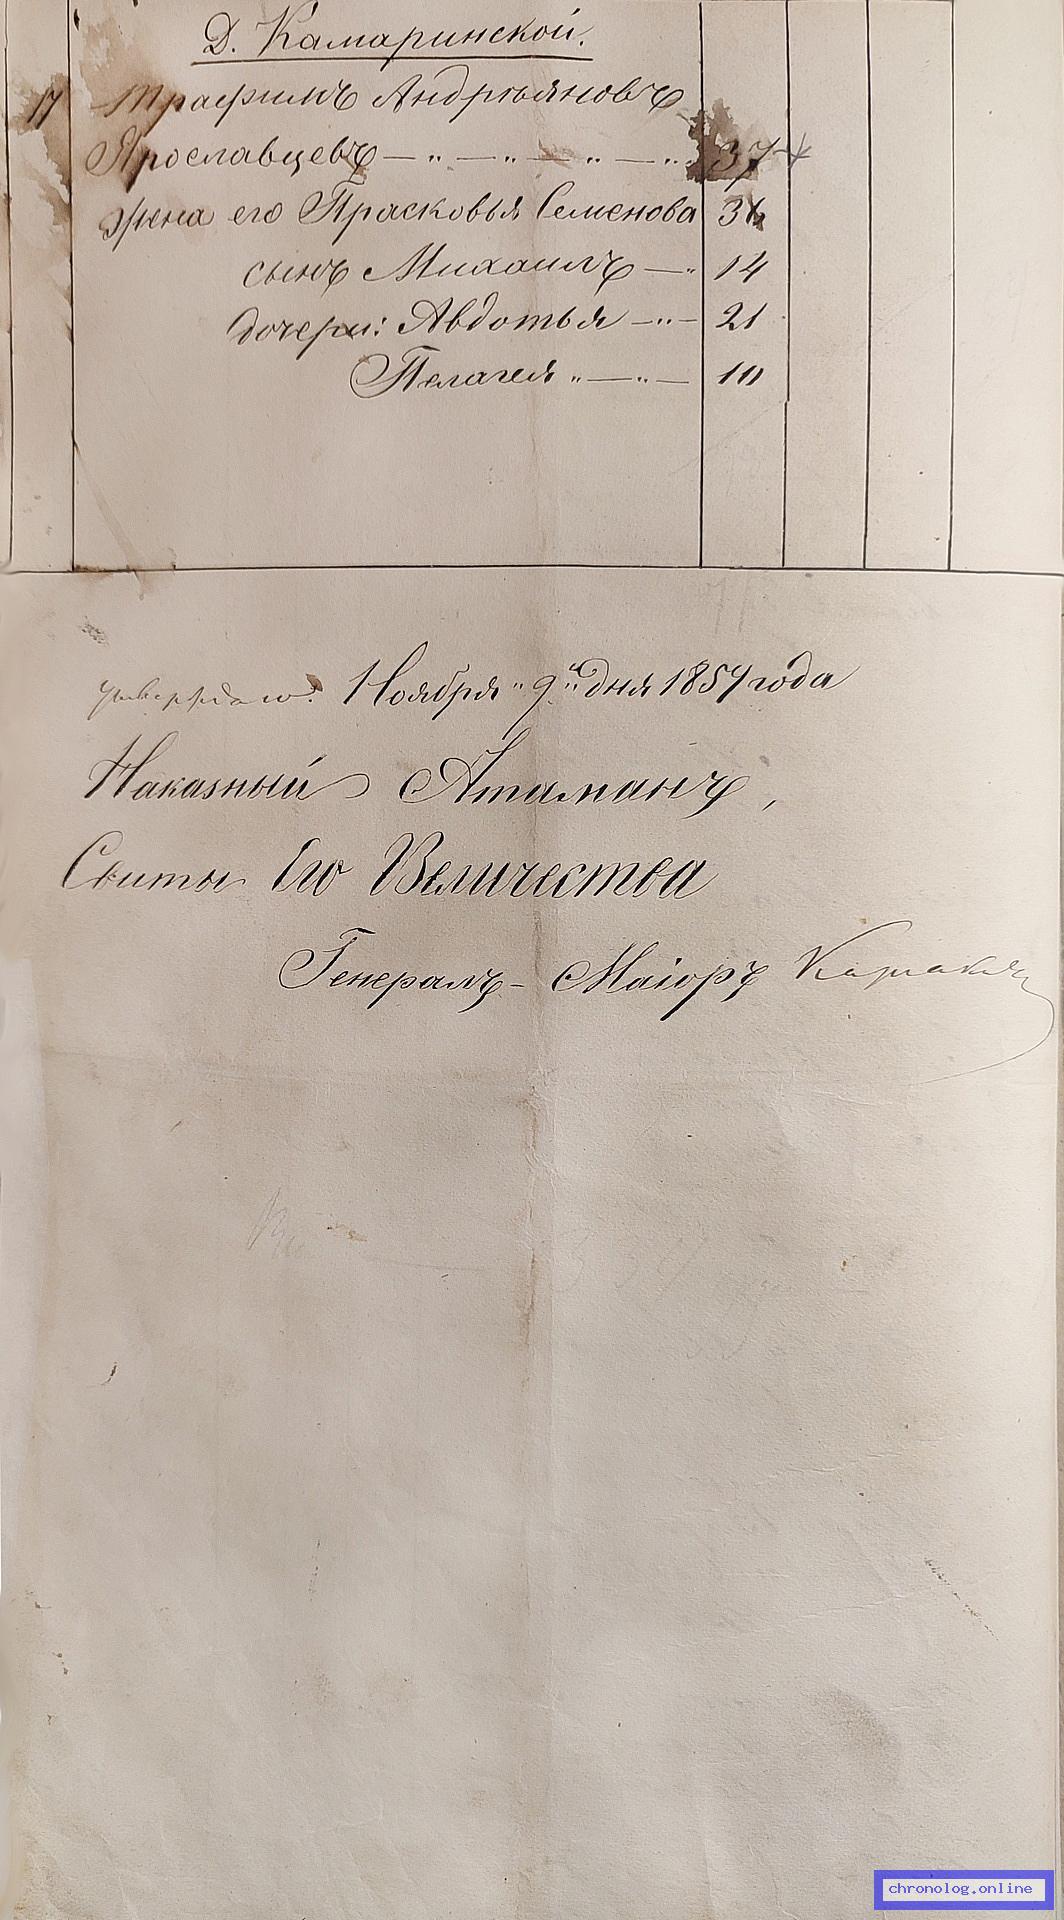 Д. Камаринской.
17 Трафимъ Андрѣяновъ
Ярославцевъ — „ — „ — „ — „ 37
жена его Прасковья Семенова 36
сынъ Михаилъ — „ 14
дочери: Авдотья — „ — 21
Пелагея „ — „ — 10
утверждаю. Ноября „ 9го „ дня 1857 года
Наказный Атаманъ,
Свиты Его Величества
Генералъ-Маіоръ
chronolog.online